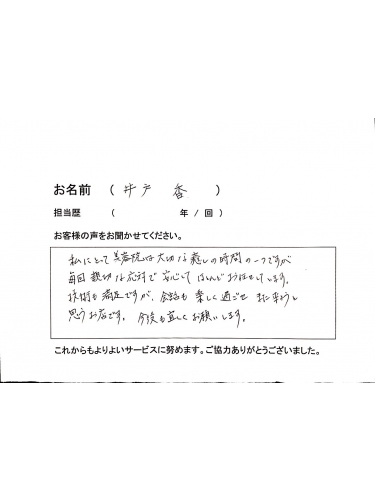 お名前 （ 井戸 香 ）
担当歴 （ 年 / 回 ）
お客様の声をお聞かせてください。
私にとって美容院は大切な癒しの時間の一つですが
毎回親切な応対で安心してほんとお任せしています。
技術も満足ですが、会話も楽しく過ごせまた来ようと
思うお店です。今後も宜しくお願いします。
これからもよりよいサービスに努めます。ご協力ありがとうございました。